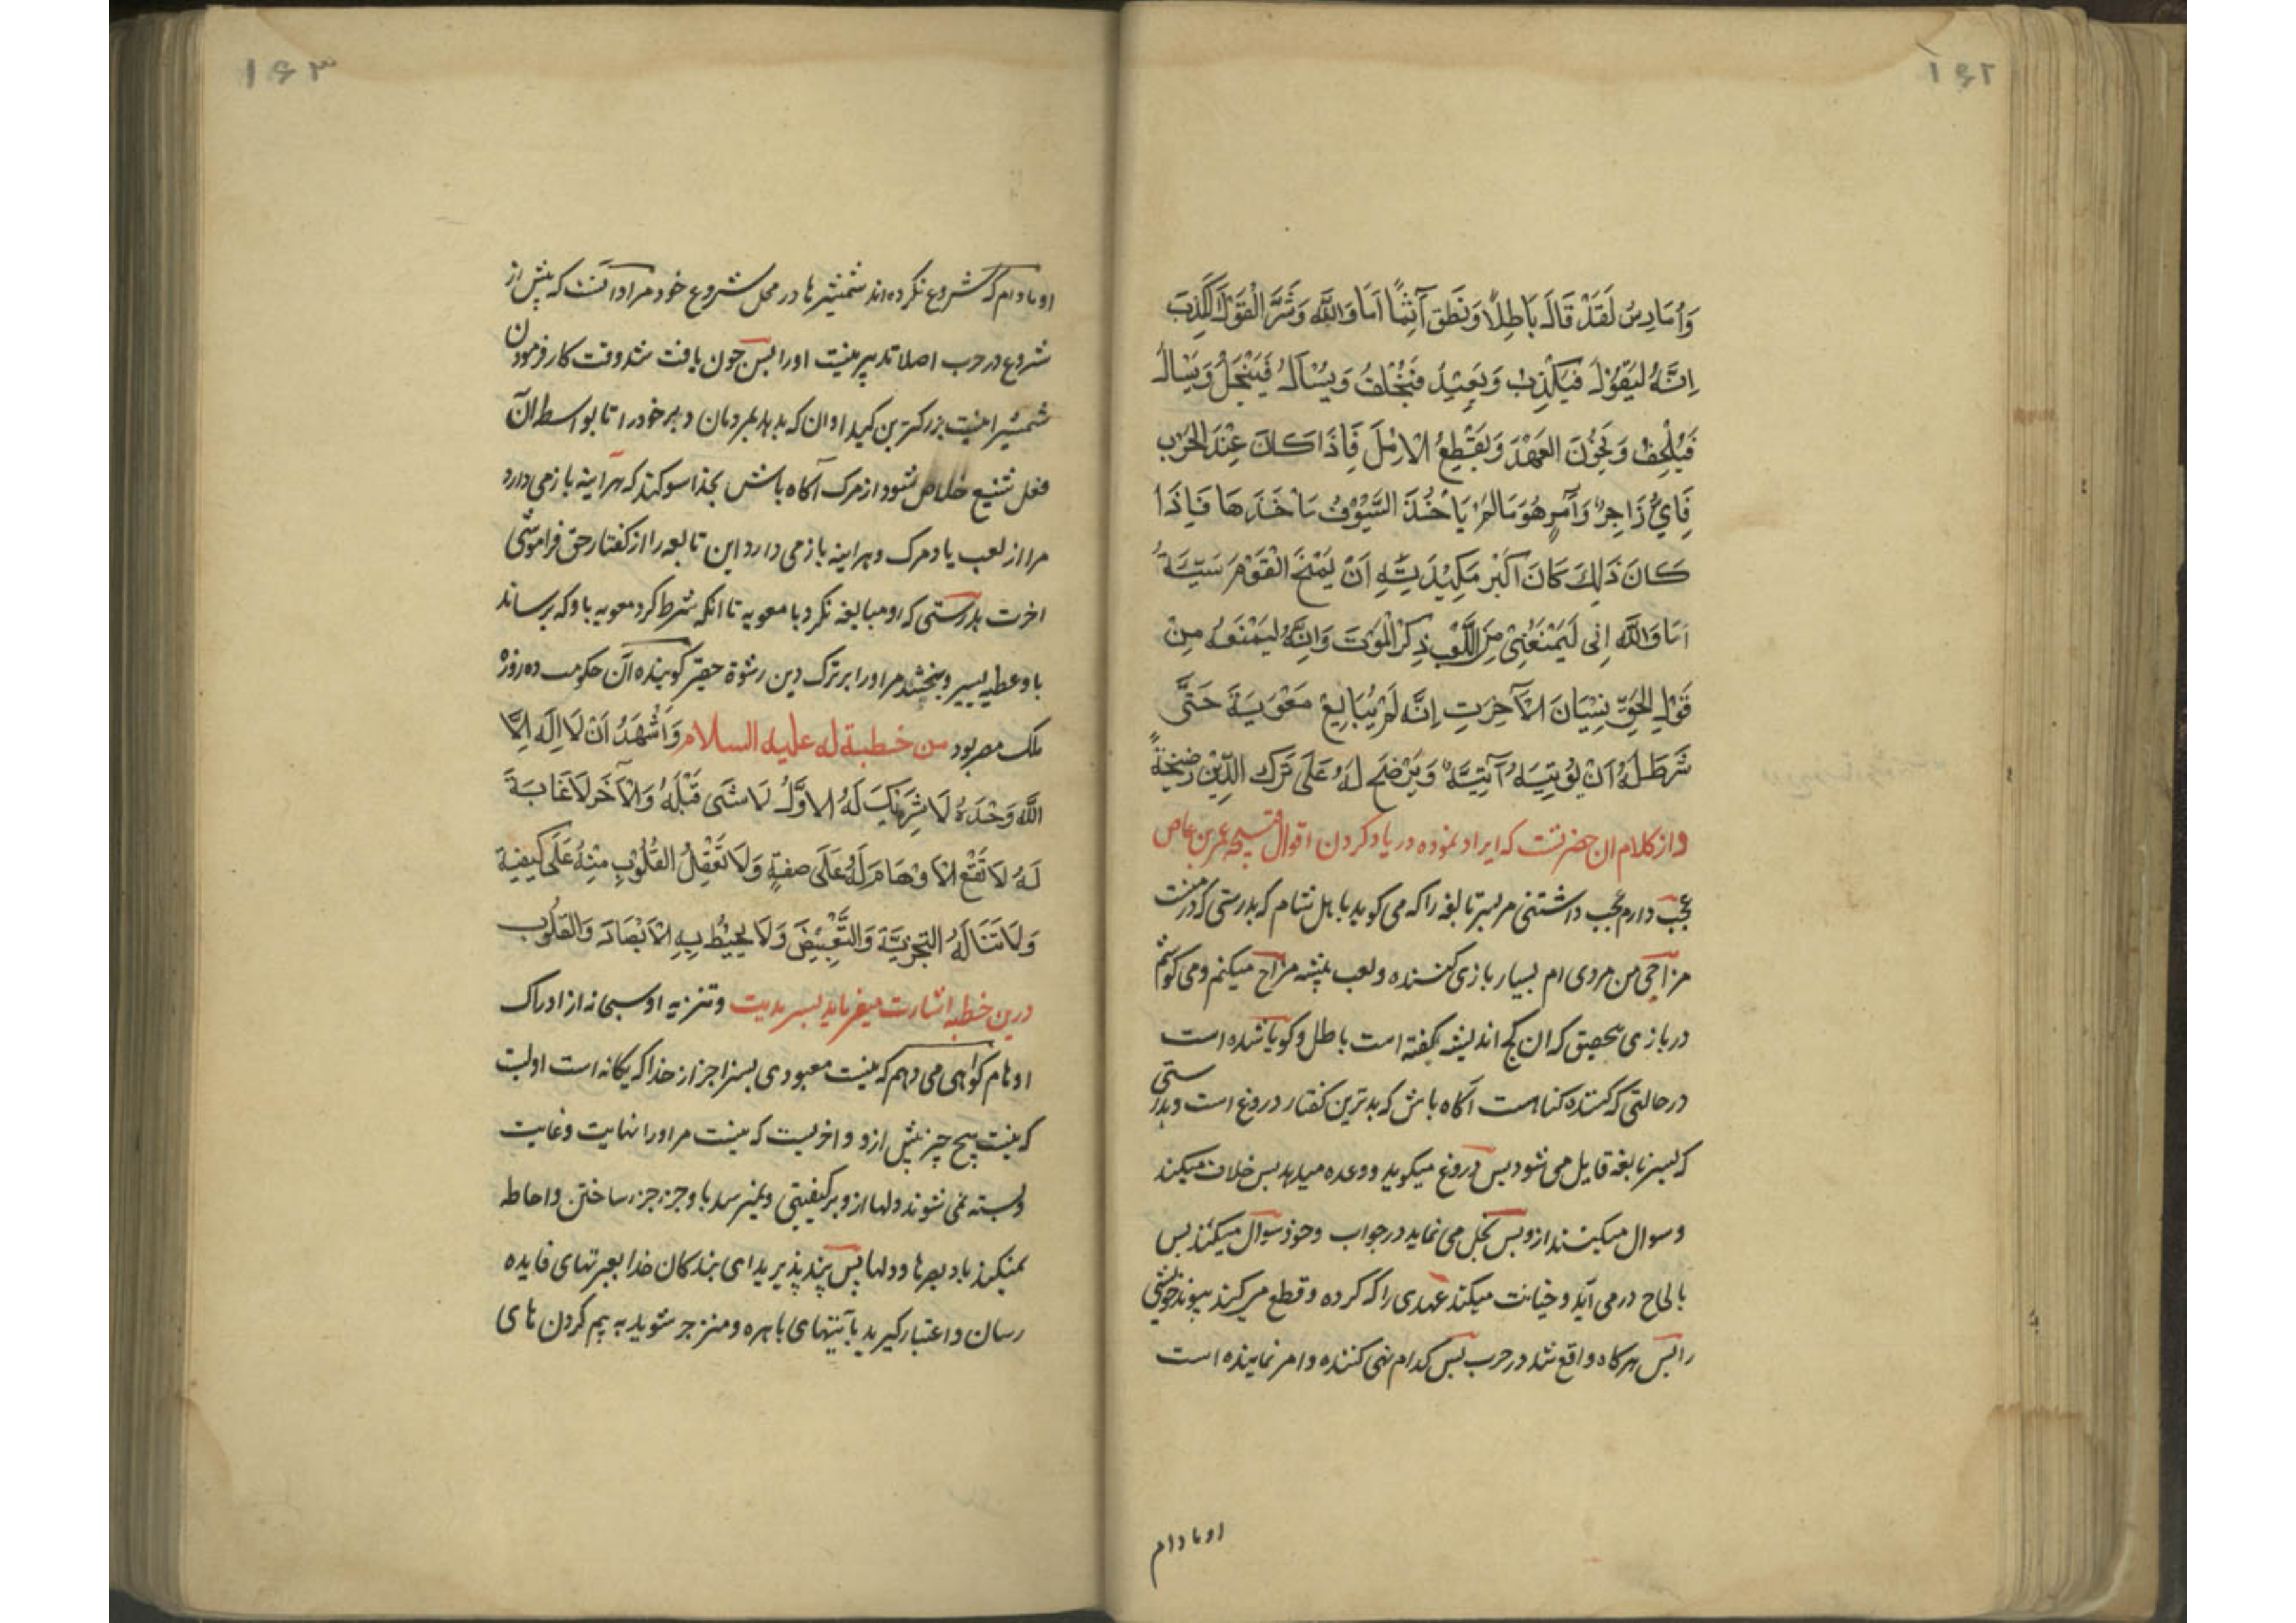 ۱۶۲
وَاُمَارِسُ لَقَدْ قَالَ بَاطِلًا وَنَطَقَ آثِمًا اَمَا وَاللّٰهِ وَشَرُّ الْقَوْلِ الْكَذِبُ
اِنَّهُ لَيَقُوْلُ فَيَكْذِبُ وَيَعِدُ فَيُخْلِفُ وَيُسْاَلُ فَيَبْخَلُ وَيَسْاَلُ
فَيُلْحِفُ وَيَخُوْنُ العَهْدَ وَيَقْطِعُ الْاِلَّ فَاِذَا كَانَ عِنْدَ الحَرْبِ
فَاَيُّ زَاجِرٍ وَآمِرٍ هُوَ مَا لَمْ يَاْخُذِ السُّيُوْفُ مَاْخَذَهَا فَاِذَا
كَانَ ذٰلِكَ كَانَ اَكْبَرُ مَكِيْدَتِهِ اَنْ يَمْنَحَ الْقَوْمَ سَبَّتَهُ
اَمَا وَاللّٰهِ اِنّى لَيَمْنَعُنِىْ مِنَ اللَّعْبِ ذِكْرُ الْمَوْتِ وَاِنَّهُ لَيَمْنَعُهُ مِنْ
قَوْلِ الحَقِّ نِسْيَانُ الْآخِرَتِ اِنَّه لَمْ يُبَايِعْ مَعْوِيَةَ حَتَّى
شَرَطَ لَهُ اَنْ يُؤْتِيَهُ آتِيَّةً وَيَرْضَخَ لَهُ عَلَى تَرْكِ الدِّيْنِ رَضِيْخَةً
واز كلام ان حضرتست كه ايراد نموده در ياد كردن اقوال قبيحه عمر بن عاص
عجب دارم عجب داشتنى مر پسر نابغه را كه مى كويد با اهل شام كه بدرستى كه در منست
مزاحى من مردى ام بسيار بازى كننده ولعب پيشه مزاح ميكنم ومى كوشم
در بازى بتحقيق كه ان كج انديشه بكفته است باطل وكويا شده است
در حالتى كه كننده كناهست آكاه باش كه بدترين كفتار دروغ است وبدرستى
كه پسر نابغه قايل مى شود پس دروغ ميكويد ووعده ميدهد پس خلاف ميكند
وسوال ميكنند ازو پس بخل مى نمايد در جواب وخود سوال ميكند پس
بالحاح در مى آيد وخيانت ميكند عهدى را كه كرده وقطع مى كند پيوند خويشى
را پس هركاه واقع شد در حرب پس كدام نهى كننده وامر نماينده است
او مادام
۱۶۳
او مادام كه شروع نكرده اند شمشيرها در محل شروع خود مراد آنست كه پيش از
شروع در حرب اصلا تدبير نيست او را پس چون يافت شد وقت كار فرمودن
شمشيرا نيست بزركترين كيد او ان كه بدهد بمردمان دبر خود را تا بواسطه آن
فعل شنيع خلاص شود از مرك آكاه باش بخدا سوكند كه هراينه باز مى دارد
مرا از لعب ياد مرك وهراينه باز مى دارد ابن نابغه را از كفتار حق فراموشى
اخرت بدرستى كه او مبايعه نكرد با معويه تا انكه شرط كرد معويه با وكه برساند
باو عطيه يسير وبخشد مر او را بر ترك دين رشوة حقير كوينده آن حكومت ده روزه
ملك مصر بود من خطبة له عليه السلام وَاَشْهَدُ اَنْ لَا اِلٰهَ اِلَّا
اللّٰهُ وَحْدَهُ لَا شَرِيْكَ لَهُ الاَوَّلُ لَا شَىَ قَبْلَهُ وَالْآخَرُ لَا غَايَةَ
لَهُ لَا تَقَعُ الْاَوْهَامُ لَهُ عَلَى صِفَةٍ وَلَا تَعْقِلُ القُلُوْبُ مِنْهُ عَلَى كَيْفِيَّةٍ
وَلَا تَنَالُهُ التَّجْزِيَةُ وَالتَّبْعِيْضُ وَلَا يُحِيْطُ بِهِ الْاَبْصَارُ وَالقُلُوْبُ
درين خطبه اشارت ميفرمايد بسرمديت وتنزيه او سبحانه از ادراك
اوهام كواهى مى دهم كه نيست معبودى بسزا جز از خدا كه يكانه است اوليست
كه نيست هيچ چيز پيش ازو واخريست كه نيست مر او را نهايت وغايت
وبسته نمى شوند دلها ازو بر كيفيتى ونميرسد باو جزء جزء ساختن واحاطه
نميكند باو بصرها ودلها پس پند پذيريد اى بندكان خدا بعبرتهاى فايده
رسان واعتبار كيريد بآيتهاى باهره ومنزجر شويد به بيم كردن هاى